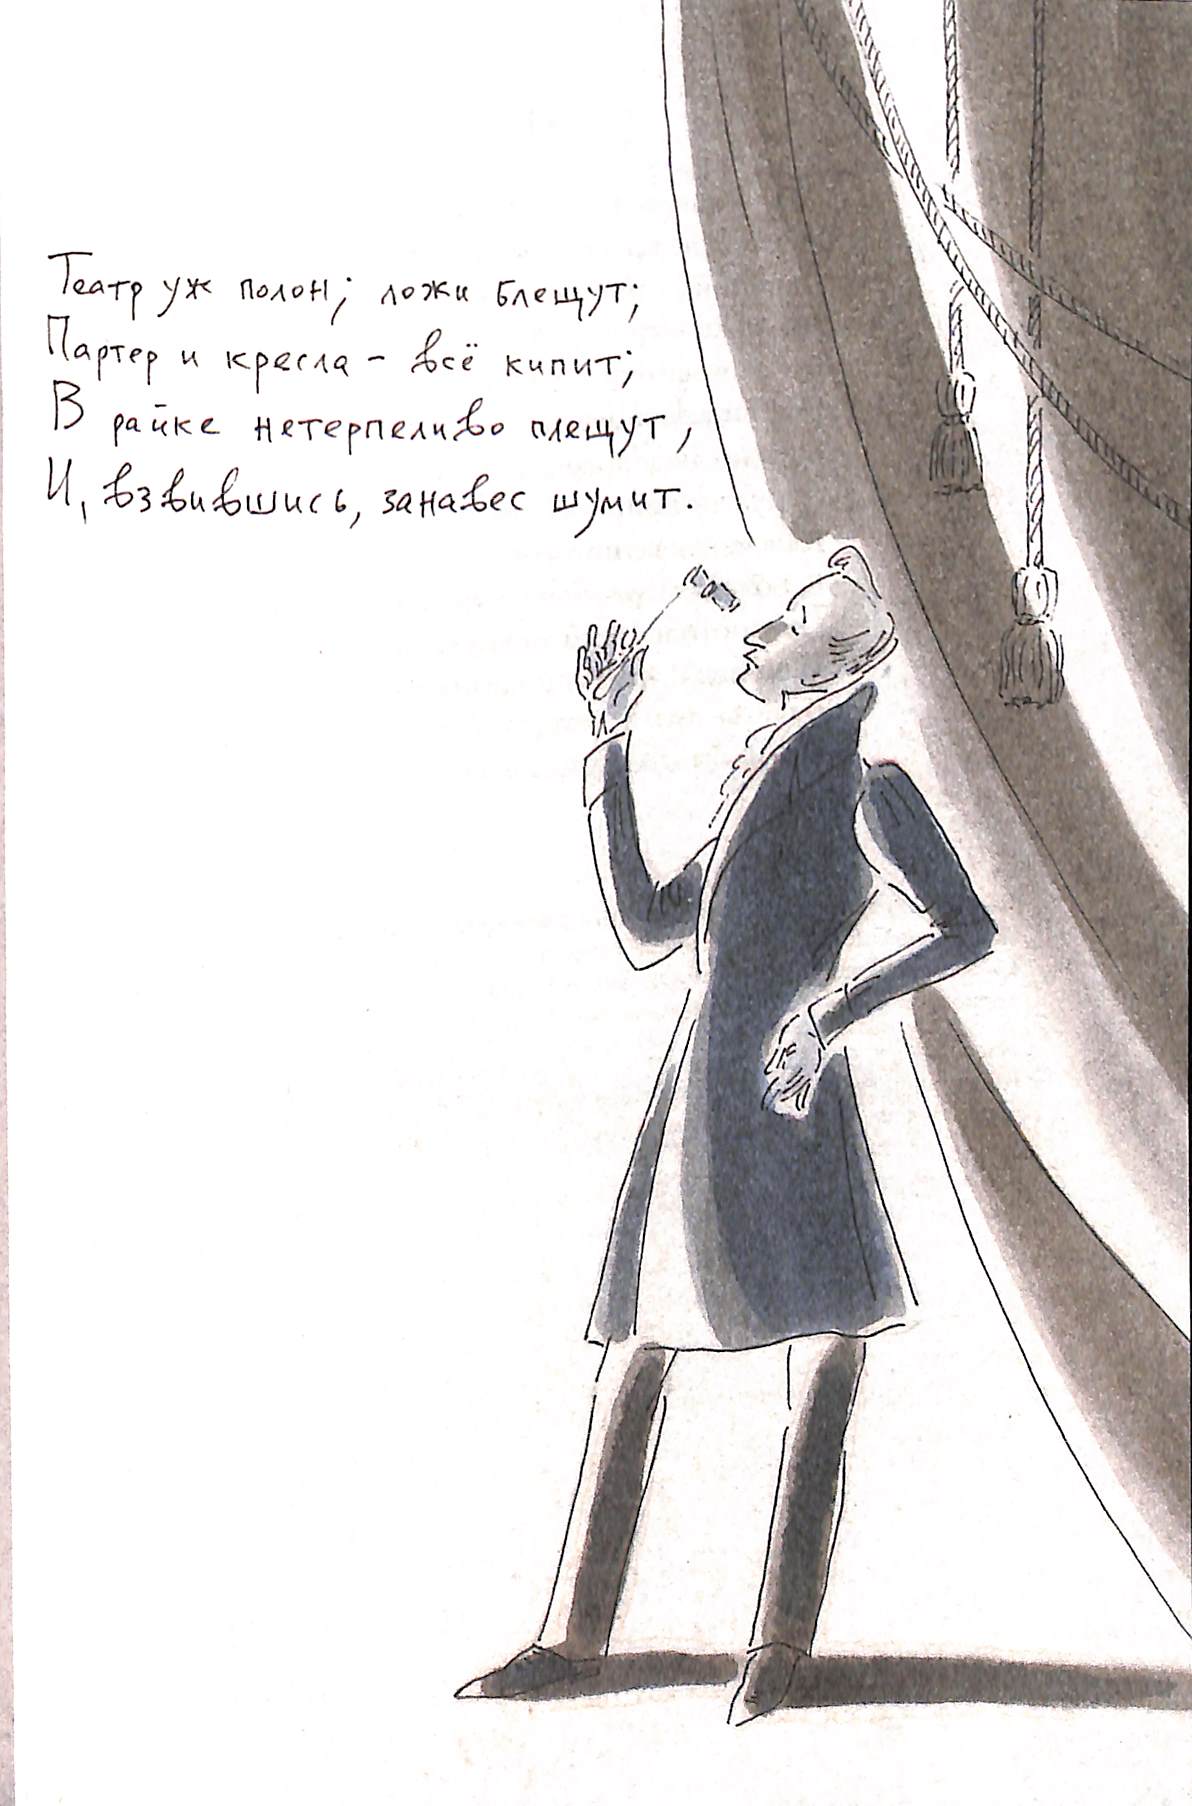 Театр уж полон; ложи блещут;
Партер и кресла - всё кипит;
В райке нетерпеливо плещут,
И, взвившись, занавес шумит.